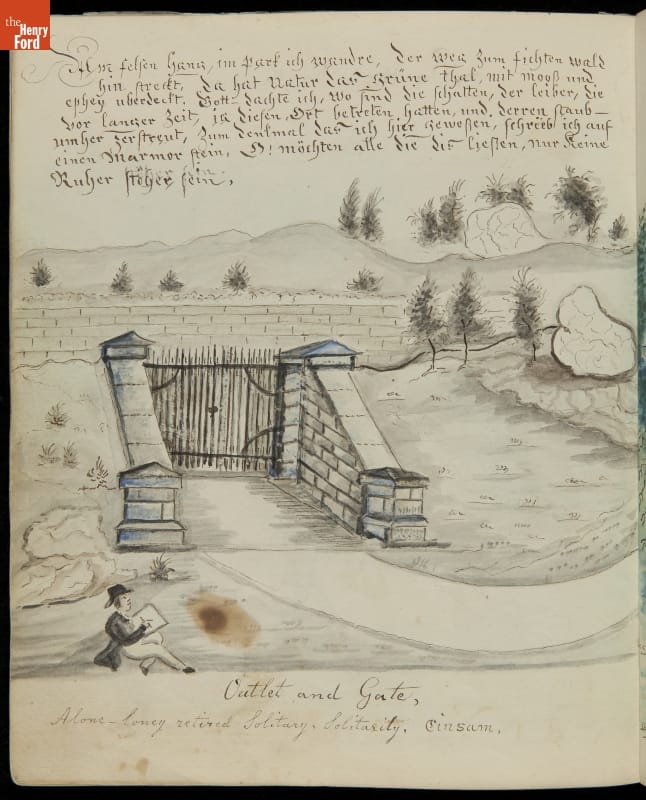 the
Henry
Ford
Am felsen Hang, im Park ich wandre, Der weg zum fichten wald
hin streckt, da hat Natur das Grüne Thal, mit mooß und
ephey uberdeckt. Gott dachte ich, wo sind die schatten, der leiber, die
vor langer Zeit, ja diesen Ort betreten hatten, und derren staub-
umher zerstreut, Zum denkmal das ich hier gewesen, schrieb ich auf
einen Marmor stein, O! möchten alle die dis ließen, nur Keine
Ruher stöher sein,
Outlet and Gate,
Alone-loney retired Solitary. Solitarily. Einsam.